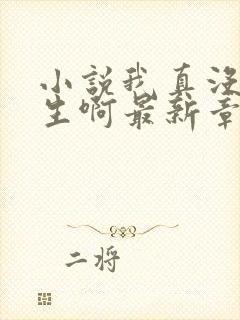 小说我真没
生啊最新章
二将